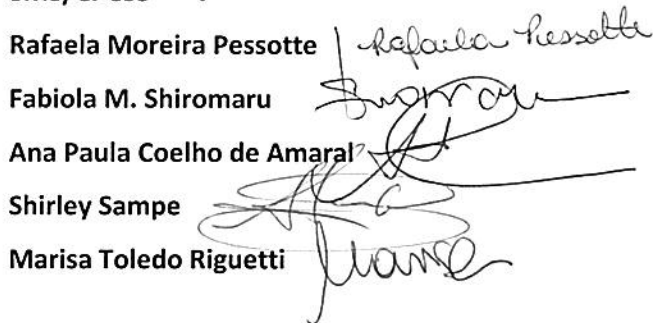 Rafaela Moreira Pessotte Rafaela Pessotte
Fabiola M. Shiromaru
Ana Paula Coelho de Amaral
Shirley Sampe
Marisa Toledo Riguetti Marisa